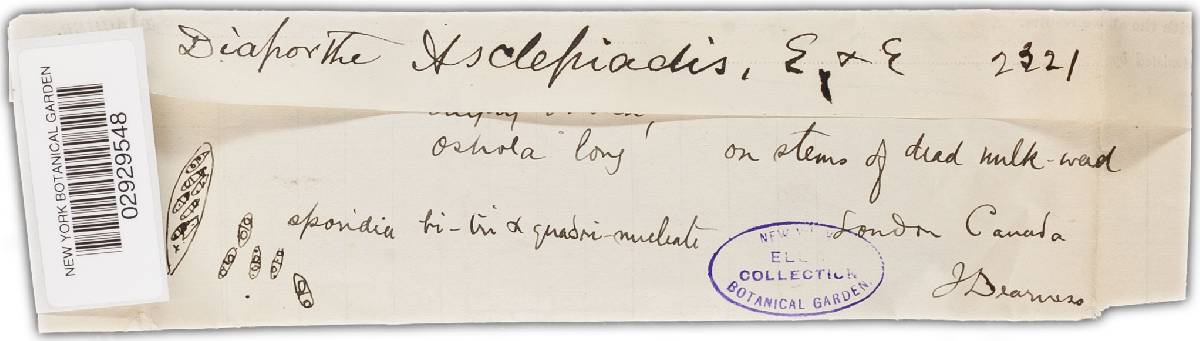 Diaporthe Asclepiadis, E & E 2321
long on stems of dead milk-weed
sporidia bi-tri & quadri-nucleate London Canada
J Dearness
NEW YORK BOTANICAL GARDEN
02929548
NEW
COLLECTION
BOTANICAL GARDEN.